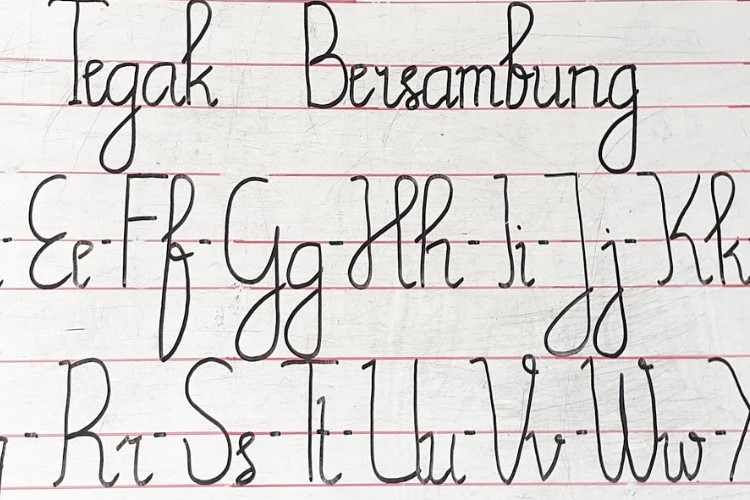 Tegak Bersambung
- Ee - Ff - Gg - Hh - Ii - Jj - Kk
- Rr - Ss - Tt - Uu - Vv - Ww -